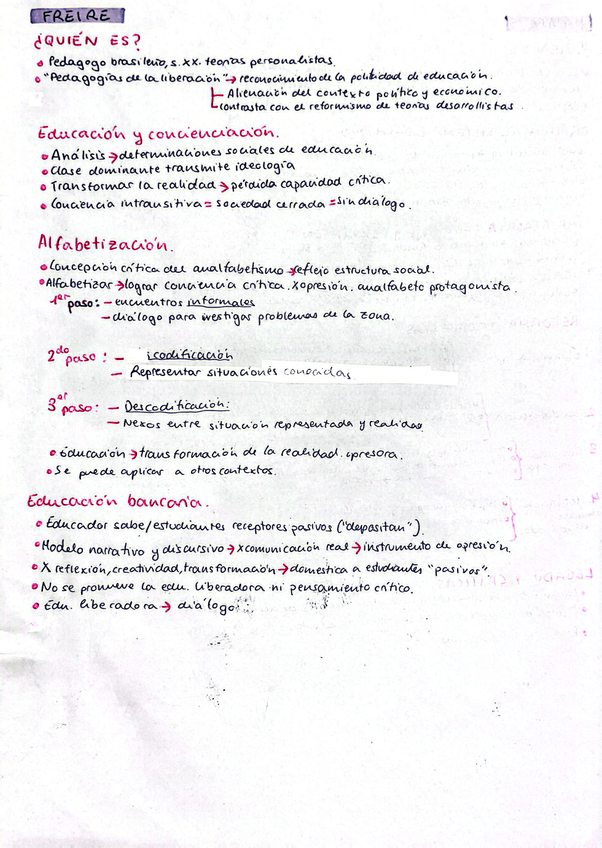 FREIRE
¿QUIÉN ES?
• Pedagogo brasileño, s.XX. teorías personalistas.
• "Pedagogías de la liberación" → reconocimiento de la politicidad de educación.
Alienación del contexto político y económico.
contrasta con el reformismo de teorías desarrollistas.
Educación y concienciación.
• Análisis → determinaciones sociales de educación.
• Clase dominante transmite ideología
• Transformar la realidad → pérdida capacidad crítica.
• Conciencia intransitiva = sociedad cerrada = sin diálogo.
Alfabetización.
• Concepción crítica del analfabetismo → reflejo estructura social.
• Alfabetizar → lograr conciencia crítica. X opresión. analfabeto protagonista.
1er paso: - encuentros informales
- diálogo para investigar problemas de la zona.
2do paso: - icodificación
- Representar situaciones conocidas
3er paso: - Descodificación:
- Nexos entre situación representada y realidad
• Educación → transformación de la realidad opresora.
• Se puede aplicar a otros contextos.
Educación bancaria.
• Educador sabe/estudiantes receptores pasivos ("depositan").
• Modelo narrativo y discursivo → X comunicación real → instrumento de opresión.
• X reflexión, creatividad, transformación → domestica a estudiantes "pasivos".
• No se promueve la edu. liberadora ni pensamiento crítico.
• Edu. liberadora → diálogo